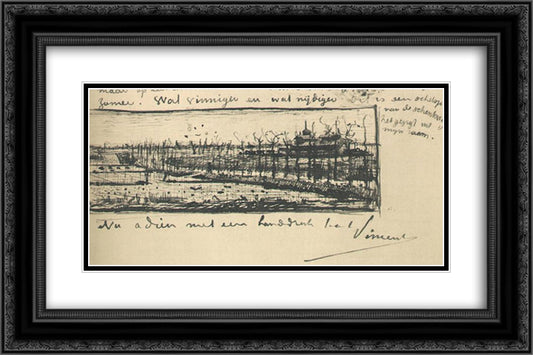 maar op een
zomer. Wat vinniger en wat nijdiger Dit is een
van de
het gezigt uit
mijn raam.
Nu adieu met een handdruk t. à t.
Vincent